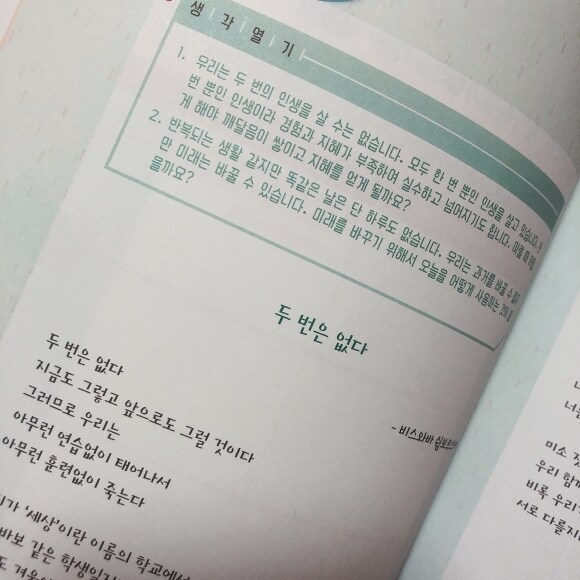 생각열기
1. 우리는 두 번의 인생을 살 수는 없습니다. 모두 한 번 뿐인 인생을 살고 있습니다.
번 뿐인 인생이라 경험과 지혜가 부족하여 실수하고 넘어지기도 합니다.
게 해야 깨달음이 쌓이고 지혜를 얻게 될까요?
2. 반복되는 생활 같지만 똑같은 날은 단 하루도 없습니다. 우리는 과거를 바꿀 수
만 미래는 바꿀 수 있습니다. 미래를 바꾸기 위해서 오늘을 어떻게 사용하는 것이
을까요?
두 번은 없다
- 비스와바
두 번은 없다
지금도 그렇고 앞으로도 그럴 것이다
그러므로 우리는
아무런 연습없이 태어나서
아무런 훈련없이 죽는다
'세상'이란 이름의 학교에서
바보 같은 학생일지
미소
우리 함께
비록 우리
서로 다를지